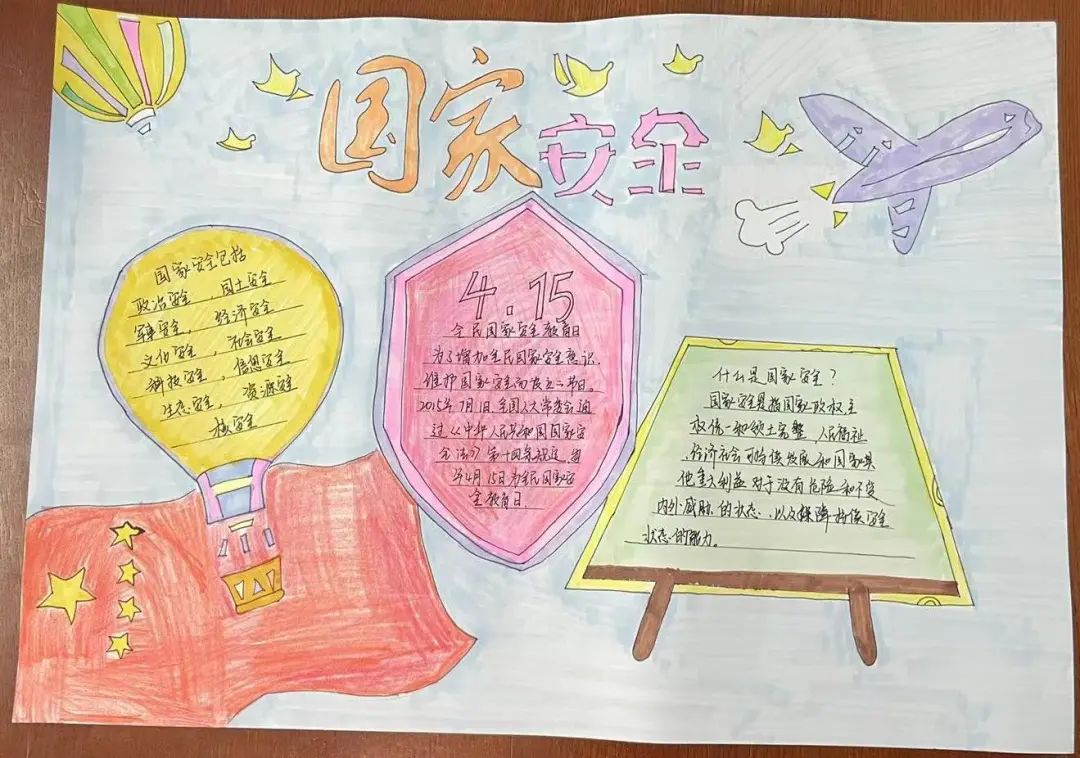 国家安全
国家安全包括
政治安全，国土安全
军事安全，经济安全
文化安全，社会安全
科技安全，信息安全
生态安全，资源安全
核安全
4.15
全民国家安全教育日
为了增加全民国家安全意识，
维护国家安全而设立的节日。
2015年7月1日全国人大常委会通
过《中华人民共和国国家安
全法》第十四条规定，每
年4月15日为全民国家安
全教育日.
什么是国家安全？
国家安全是指国家政权主
权统一和领土完整，人民福祉
，经济社会可持续发展和国家其
他重大利益对于没有危险和不受
内外威胁的状态，以及保障持续安全
状态的能力。